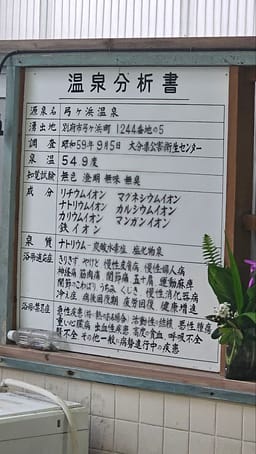 温泉分析書
源泉名 弓ヶ浜温泉
湧出地 別府市弓ヶ浜町 1244番地の5
調査 昭和59年9月5日 大分県公害衛生センター
泉温 54.9度
知覚試験 無色 澄明 無味 無臭
成分 リチウムイオン マグネシウムイオン
ナトリウムイオン カルシウムイオン
カリウムイオン マンガンイオン
鉄イオン
泉質 ナトリウム-炭酸水素塩 塩化物泉
浴用適応症 きりきず やけど 慢性皮膚病 慢性婦人病
神経痛 筋肉痛 関節痛 五十肩 運動麻痺
関節のこわばり うちみ くじき 慢性消化器病
冷え症 病後回復期 疲労回復 健康増進
浴用の禁忌症 急性疾患(特に熱のある場合) 活動性の結核 悪性腫瘍
重い心臓病 出血性疾患 高度の貧血 呼吸不全
腎不全 その他一般に病勢進行中の疾患